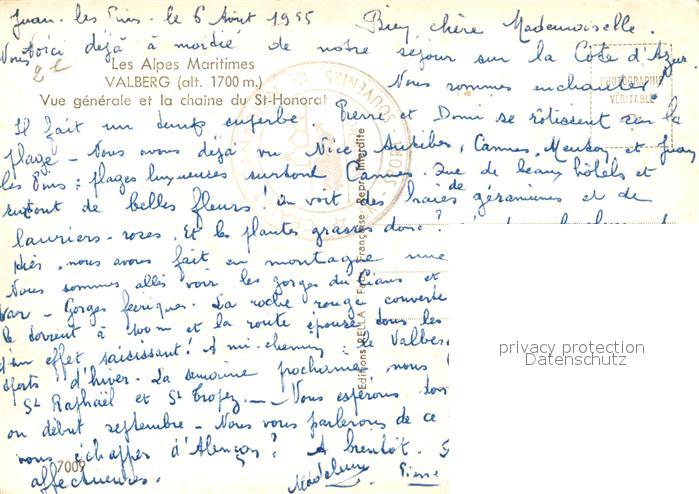 Juan-les-Pins. le 6 Août 1955
Bien chère Mademoiselle.
Nous voici déjà à moitié de notre séjour sur la Côte d'Azur.
Les Alpes Maritimes
VALBERG (alt. 1700 m.)
Vue générale et la chaîne du St-Honorat
Nous sommes enchantés
PHOTOGRAPHIE
VÉRITABLE
Il fait un temps superbe. Pierre et Domi se rôtissent sur la
plage - Nous avons déjà vu Nice Antibes, Cannes, Menton et Juan
les Pins : plages luxueuses surtout Cannes. Que de beaux hôtels et
surtout de belles fleurs! On voit des haies de géraniums et de
lauriers-roses. Et les plantes grasses donc?
hier, nous avons fait en montagne une
Nous sommes allés voir les gorges du Cians et
Var - Gorges féeriques. La roche rouge
le torrent à 100m et la route épouse tous les
d'un effet saisissant! A mi-chemin: le Valberg
sports d'hiver. La semaine prochaine nous
St Raphaël et St Tropez. - Nous espérons
ou début septembre - Nous vous parlerons de ce
vous échapper d'Alençon? A bientôt.
affectueuses.
Madeleine
Pierre
7009
Editions RELLA
Française
Repr. Interdite
SOUVENIRS
privacy protection
Datenschutz